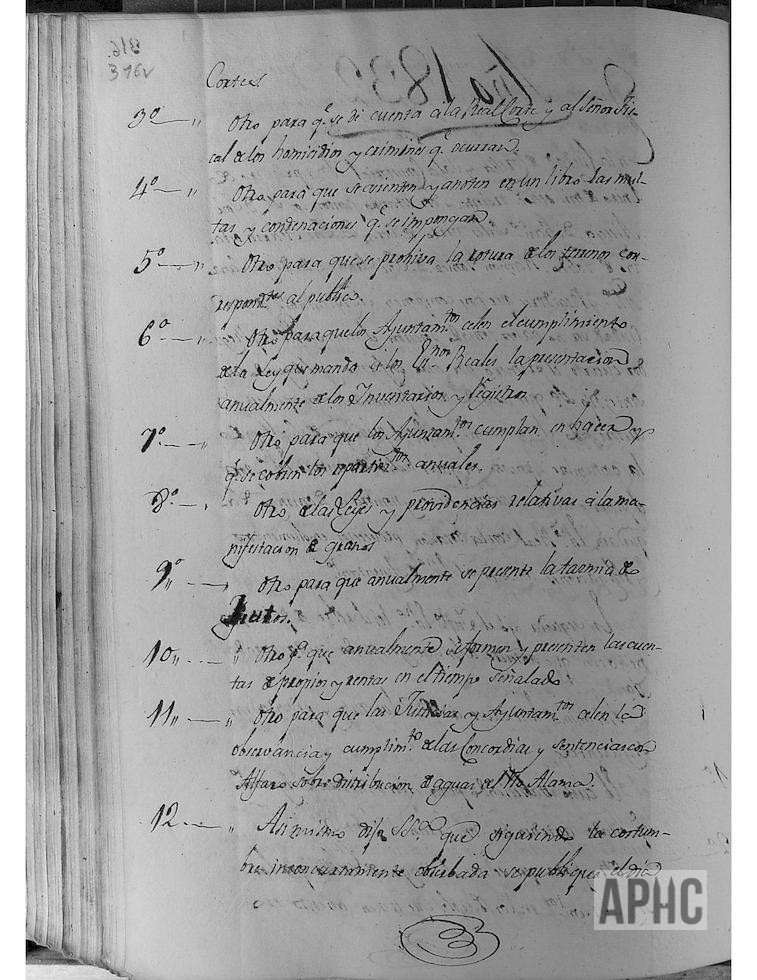 316.
316v
Cortes.
3º " Otro para q.e se dé cuenta á la Real Corte y al Señor Fis-
cal de los homicidios y crimines q.e ocurran.
4º " Otro para que se asienten y anoten en un libro las mul-
tas y condenaciones q.e se impongan
5º " Otro para que se prohiva la rotura de los terrenos cor-
respond.tes al publico.
6º " Otro para que los Ayuntam.tos celen el cumplimiento
de la Ley que manda á los Es.nos Reales la presentacion
anualmente de los Inventarios y Registros
7º " Otro para que los Ayuntam.tos cumplan en hacer y
q.e se cobren los repartim.tos anuales.
8º " Otro de las Leyes y providencias relativas á la ma-
nifestacion de granos
9º " Otro para que anualmente se presente la tazmia de
frutos.
10 " Otro p.a que anualmente se formen y presenten las cuen-
tas de propios y rentas en el tiempo señalado
11 " Otro para que las Justicias y Ayuntam.tos celen la
observancia y cumplim.to de las Concordias y sentencias con
Alfaro sobre distribucion de aguas del Rio Alama.
12 " Asimismo dijo que siguiendo la costum-
bre inconcusamente obserbada se publiquen el dia
APHC